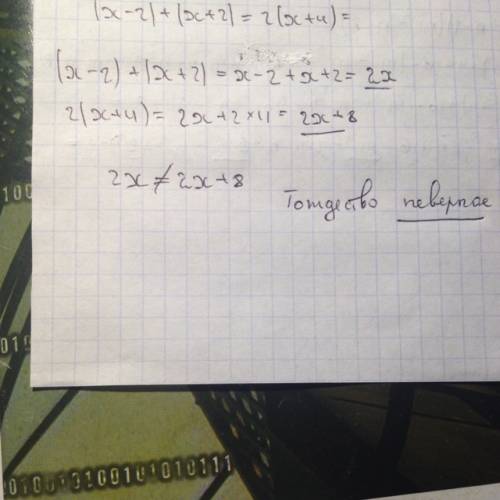 (x-2)+(x+2)=2(x+4)=
(x-2)+(x+2)=x-2+x+2=2x
2(x+4)=2x+2×4=2x+8
2x≠2x+8
Тождество неверное
100
010
0100101001010101011